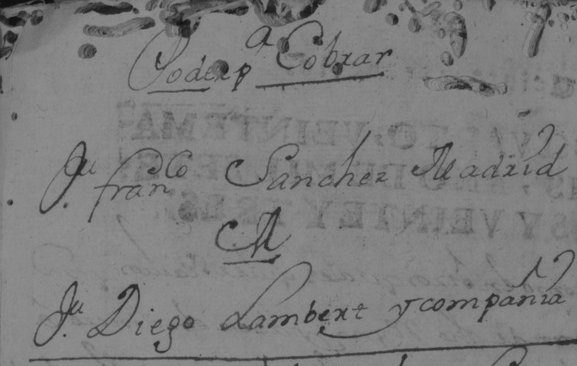 Poder pa Cobrar
Ju franco Sanchez Madrid
A
Ju. Diego Lambert y compañia